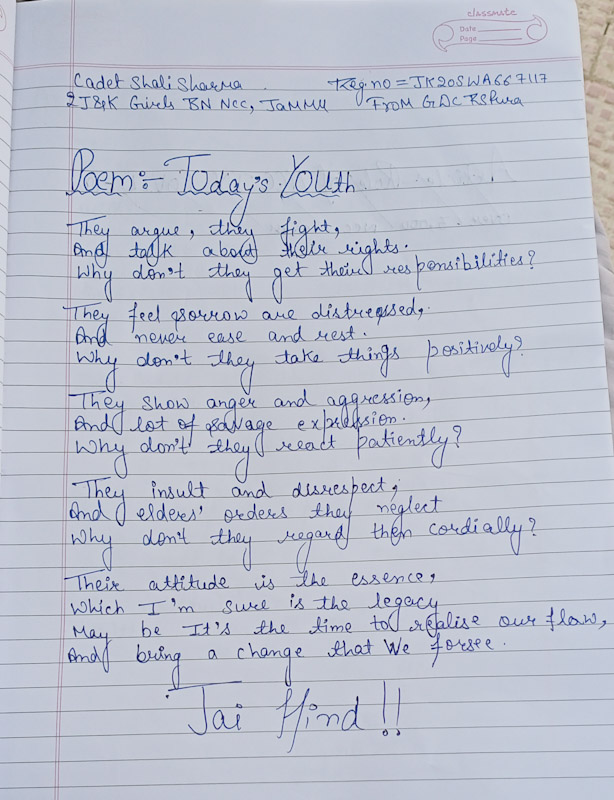 classmate
Date
Page
Cadet Shali Sharma Reg no = JK20SWA667117
2 J&K Girls BN NCC, JAMMU From GDC RSPura
Poem:- Today's Youth
They argue, they fight,
And talk about their rights.
Why don't they get their responsibilities?
They feel sorrow are distressed,
And never ease and rest.
Why don't they take things positively?
They show anger and aggression,
And lot of savage expression.
Why don't they react patiently?
They insult and disrespect,
And elders' orders they neglect
Why don't they regard then cordially?
Their attitude is the essence,
Which I'm sure is the legacy
May be It's the time to realise our flaw,
And bring a change that We forsee.
Jai Hind!!